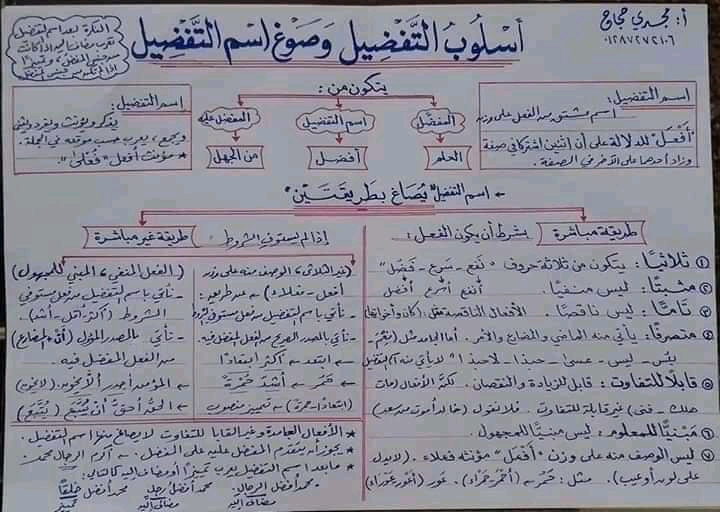 أ: مجدي حجاج
٠١٢٨٧٢٧٢١٠٦
أسلوب التفضيل وصوغ اسم التفضيل
النكرة بعد اسم التفضيل
تعرب مضافا إليه إذا كانت
من جنس المفضل، وتمييزًا
إذا لم تكن من جنس المفضل
يتكون من:
اسم التفضيل:
اسم مشتق من الفعل على وزن
"أفْعَل" للدلالة على أن اثنين اشتركا في صفة
وزاد أحدهما على الآخر في الصفة.
المفضَّل
اسم التفضيل
المفضل عليه
العلم
أفضل
من الجهل
اسم التفضيل:
يذكر ويؤنث ويفرد ويثنى
ويجمع، يعرب حسب موقعه في الجملة.
* مؤنث أفعل "فُعْلى".
← اسم التفضيل "يُصَاغ بطريقتَيْن"
طريقة مباشرة
بشرط أن يكون الفعل:
إذا لم يستوفِ الشروط
طريقة غير مباشرة
① ثلاثيًّا: يتكون من ثلاثة حروف "نَفَع - سَرُع - فَضُل"
أنفع أسْرع أفضل
② مثبتًا: ليس منفيًّا
③ تامًّا: ليس ناقصًا. الأفعال الناقصة تعمل (كان وأخواتها)
④ متصرفًا: يأتي منه الماضي والمضارع والأمر. أما الجامد مثل (نِعْمَ-
بئس - ليس - عسى - حبذا - لا حبذا) لا يأتي منه اسم التفضيل
⑤ قابلًا للتفاوت: قابل للزيادة والنقصان. ككثرة الأفعال (مات
هلك - فنى) غير قابلة للتفاوت. فلا نقول (خالد أموت من سعد)
⑥ مَبْنيًّا للمعلوم: ليس مبنيًّا للمجهول.
⑦ ليس الوصف منه على وزن "أفْعَل" مؤنثه فعلاء. (لا يدل
على لون أو عيب). مثل: حَمُر ← (أحْمَر حَمْراء). عَوِر (أعْوَر عَوْراء)
(غير الثلاثي، الوصف منه على وزن
أفعل - فعلاء) ← عن طريق:
- نأتي باسم التفضيل من فعل مستوفي الشروط
- نأتي بالمصدر الصريح من الفعل المفضل فيه.
← ابتعد ← أكثر ابتعادًا
← حَمُر ← أشدّ حُمْرَةً
(ابتعادًا - حمرة) ← تمييز منصوب
(الفعل المنفي، المبني للمجهول)
- نأتي باسم التفضيل من فعل مستوفي
الشروط (أكثر، أقل - أشد).
- نأتي بالمصدر المؤول (أنْ + المضارع)
من الفعل المفضل فيه
← المؤمن أجدر ألا يخون. (لا يخون)
← الحق أحقُّ أنْ يُتَّبَعَ (يُتَّبَع)
* الأفعال الجامدة وغير القابلة للتفاوت لا يصاغ منها اسم التفضيل.
* يجوز أن يتقدم المفضل عليه على المفضل. ← أكرم الرجال محمد.
* ما بعد اسم التفضيل يعرب تمييزًا أو مضافا إليه كالتالي:
محمد أفضل الرجال. محمد أفضل رجل محمد أفضل خلقًا
مضاف إليه مضاف إليه تمييز